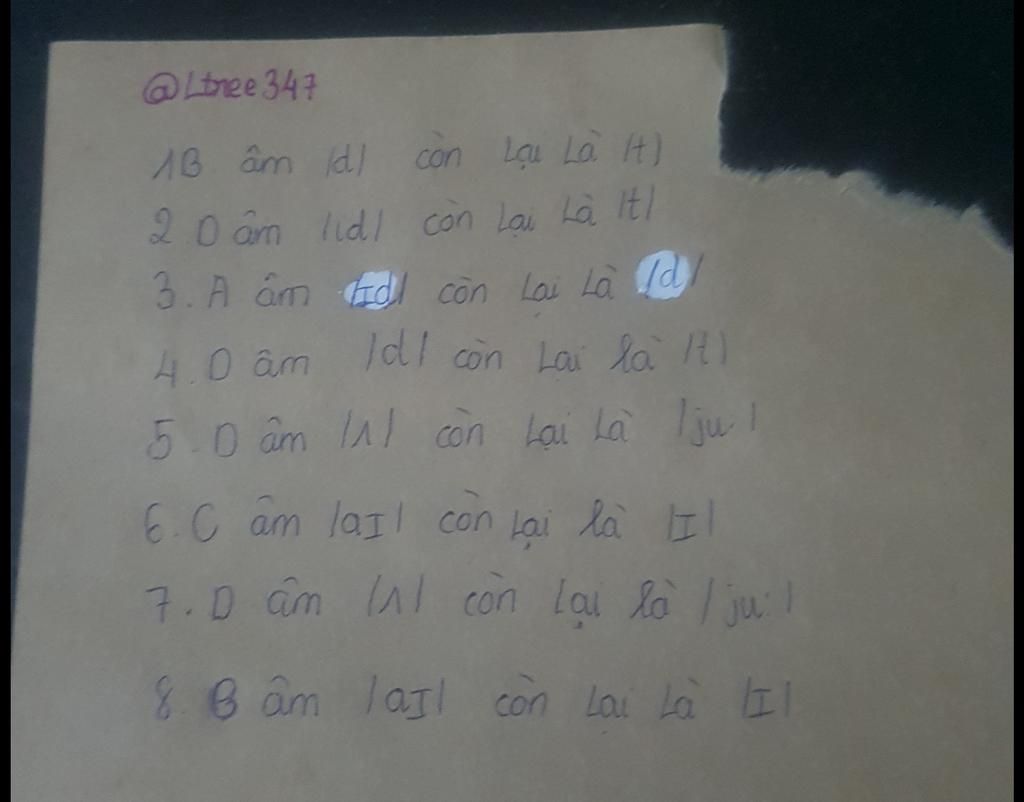 @Ltree347
1B âm /d/ còn lại là /t/
2. D âm /id/ còn lại là /t/
3. A âm /Id/ còn lại là /d/
4. D âm /d/ còn lại là /t/
5. D âm /ʌ/ còn lại là /ju:/
6. C âm /aI/ còn lại là /I/
7. D âm /ʌ/ còn lại là /ju:/
8. B âm /aI/ còn lại là /I/